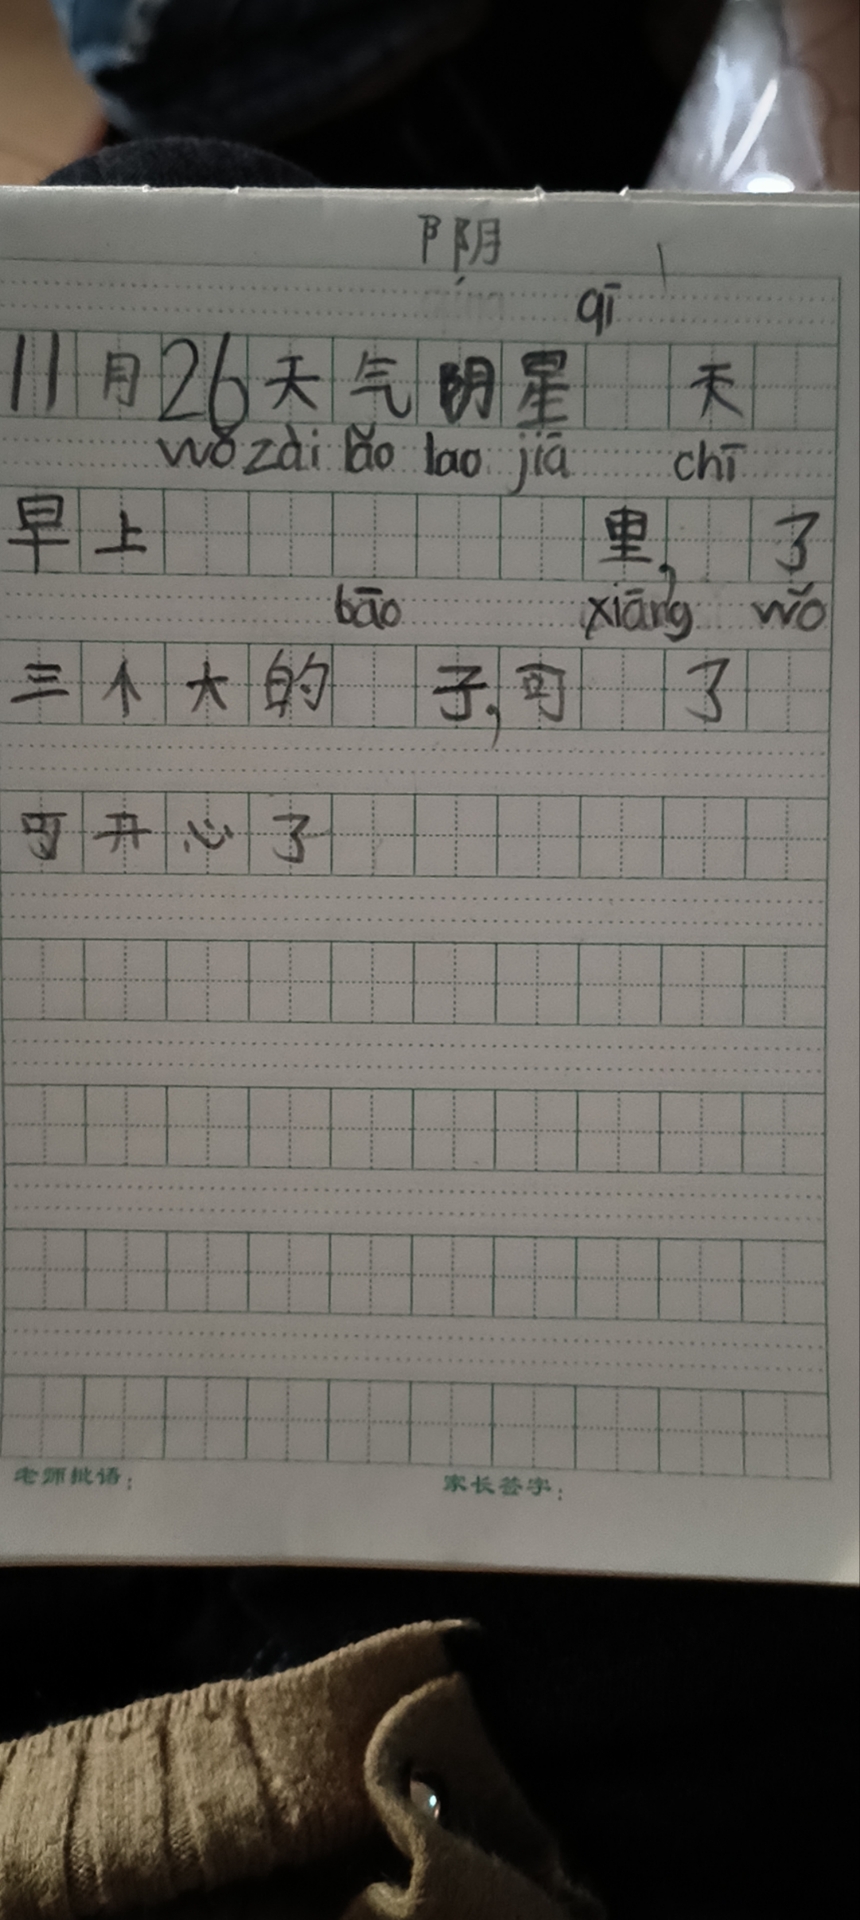 阝阴
qī
11月26天气阴星 天
wǒ zài lǎo lao jiā chī
早上 里, 了
bāo xiāng wǒ
三个大的 子,可 了
可开心了
老师批语:
家长签字: